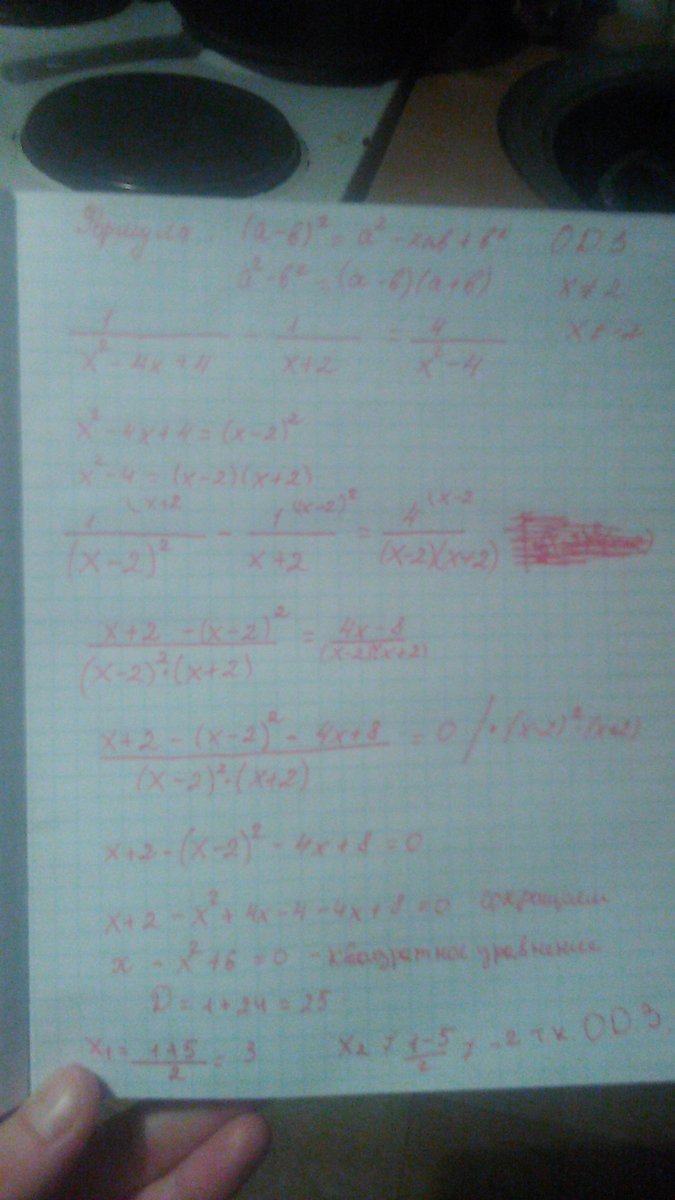 Формула: (a-b)² = a² - 2ab + b² О.D.З
a² - b² = (a-b)(a+b) x ≠ 2
x ≠ -2
1/(x² - 4x + 4) - 1/(x+2) = 4/(x² - 4)
x² - 4x + 4 = (x-2)²
x² - 4 = (x-2)(x+2)
1 (x+2/(x-2)² - 1 (x-2)²/(x+2) = 4 (x-2/(x-2)(x+2)
(x+2 - (x-2)²)/((x-2)²·(x+2)) = (4x-8)/((x-2)²(x+2))
(x+2 - (x-2)² - 4x+8)/((x-2)²·(x+2)) = 0 / · (x-2)²·(x+2)
x+2 - (x-2)² - 4x + 8 = 0
x+2 - x² + 4x - 4 - 4x + 8 = 0 сокращаем
x - x² + 6 = 0 - квадратное уравнение
D = 1 + 24 = 25
x₁ = (1+5)/2 = 3 x₂ ≠ (1-5)/2 ≠ -2 т.к О.D.З.